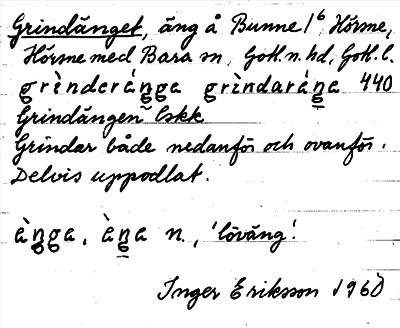 Grindänget, äng å Bunne 1⁶ Hörsne,
Hörsne med Bara sn, Gotl. n. hd, Gotl. l.
grìnderáŋga grìndaráŋa 440
Grindängen Lskk
Grindar både nedanför och ovanför.
Delvis uppodlat.
àŋga, àŋa n., 'löväng'.
Inger Eriksson 1960